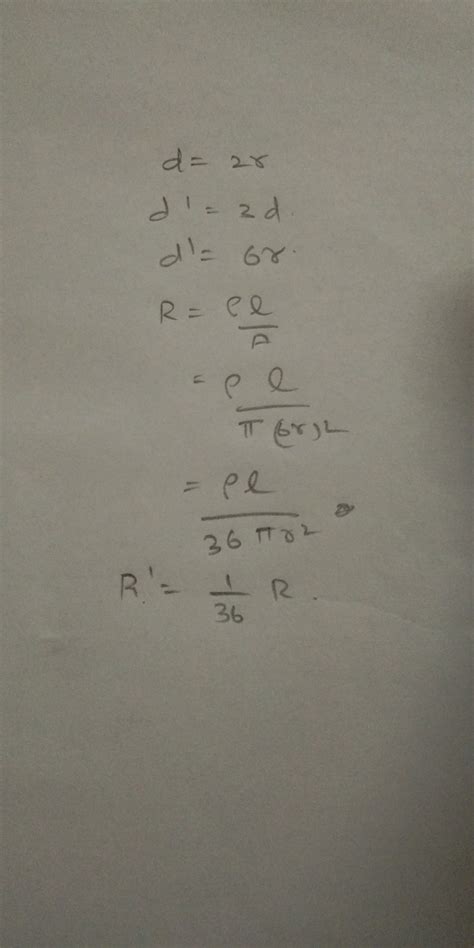 d = 2r
d' = 2d.
d' = 6r.
R = ρl/A
= ρ l/π(6r)2
= ρl/36πr2
R' = 1/36 R.